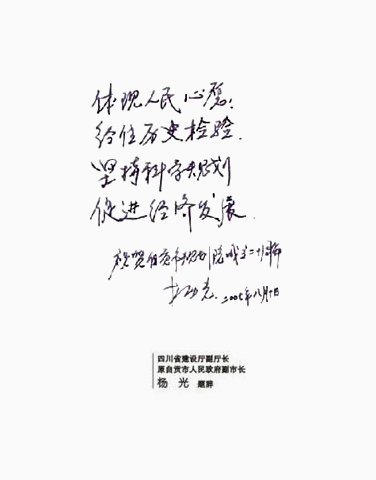 体现人民心愿;
经住历史检验.
坚持科学规划
促进经济发展.
祝贺自贡市规划院成立二十周年
杨光. 2005年八月
四川省建设厅副厅长
原自贡市人民政府副市长
杨 光 题辞